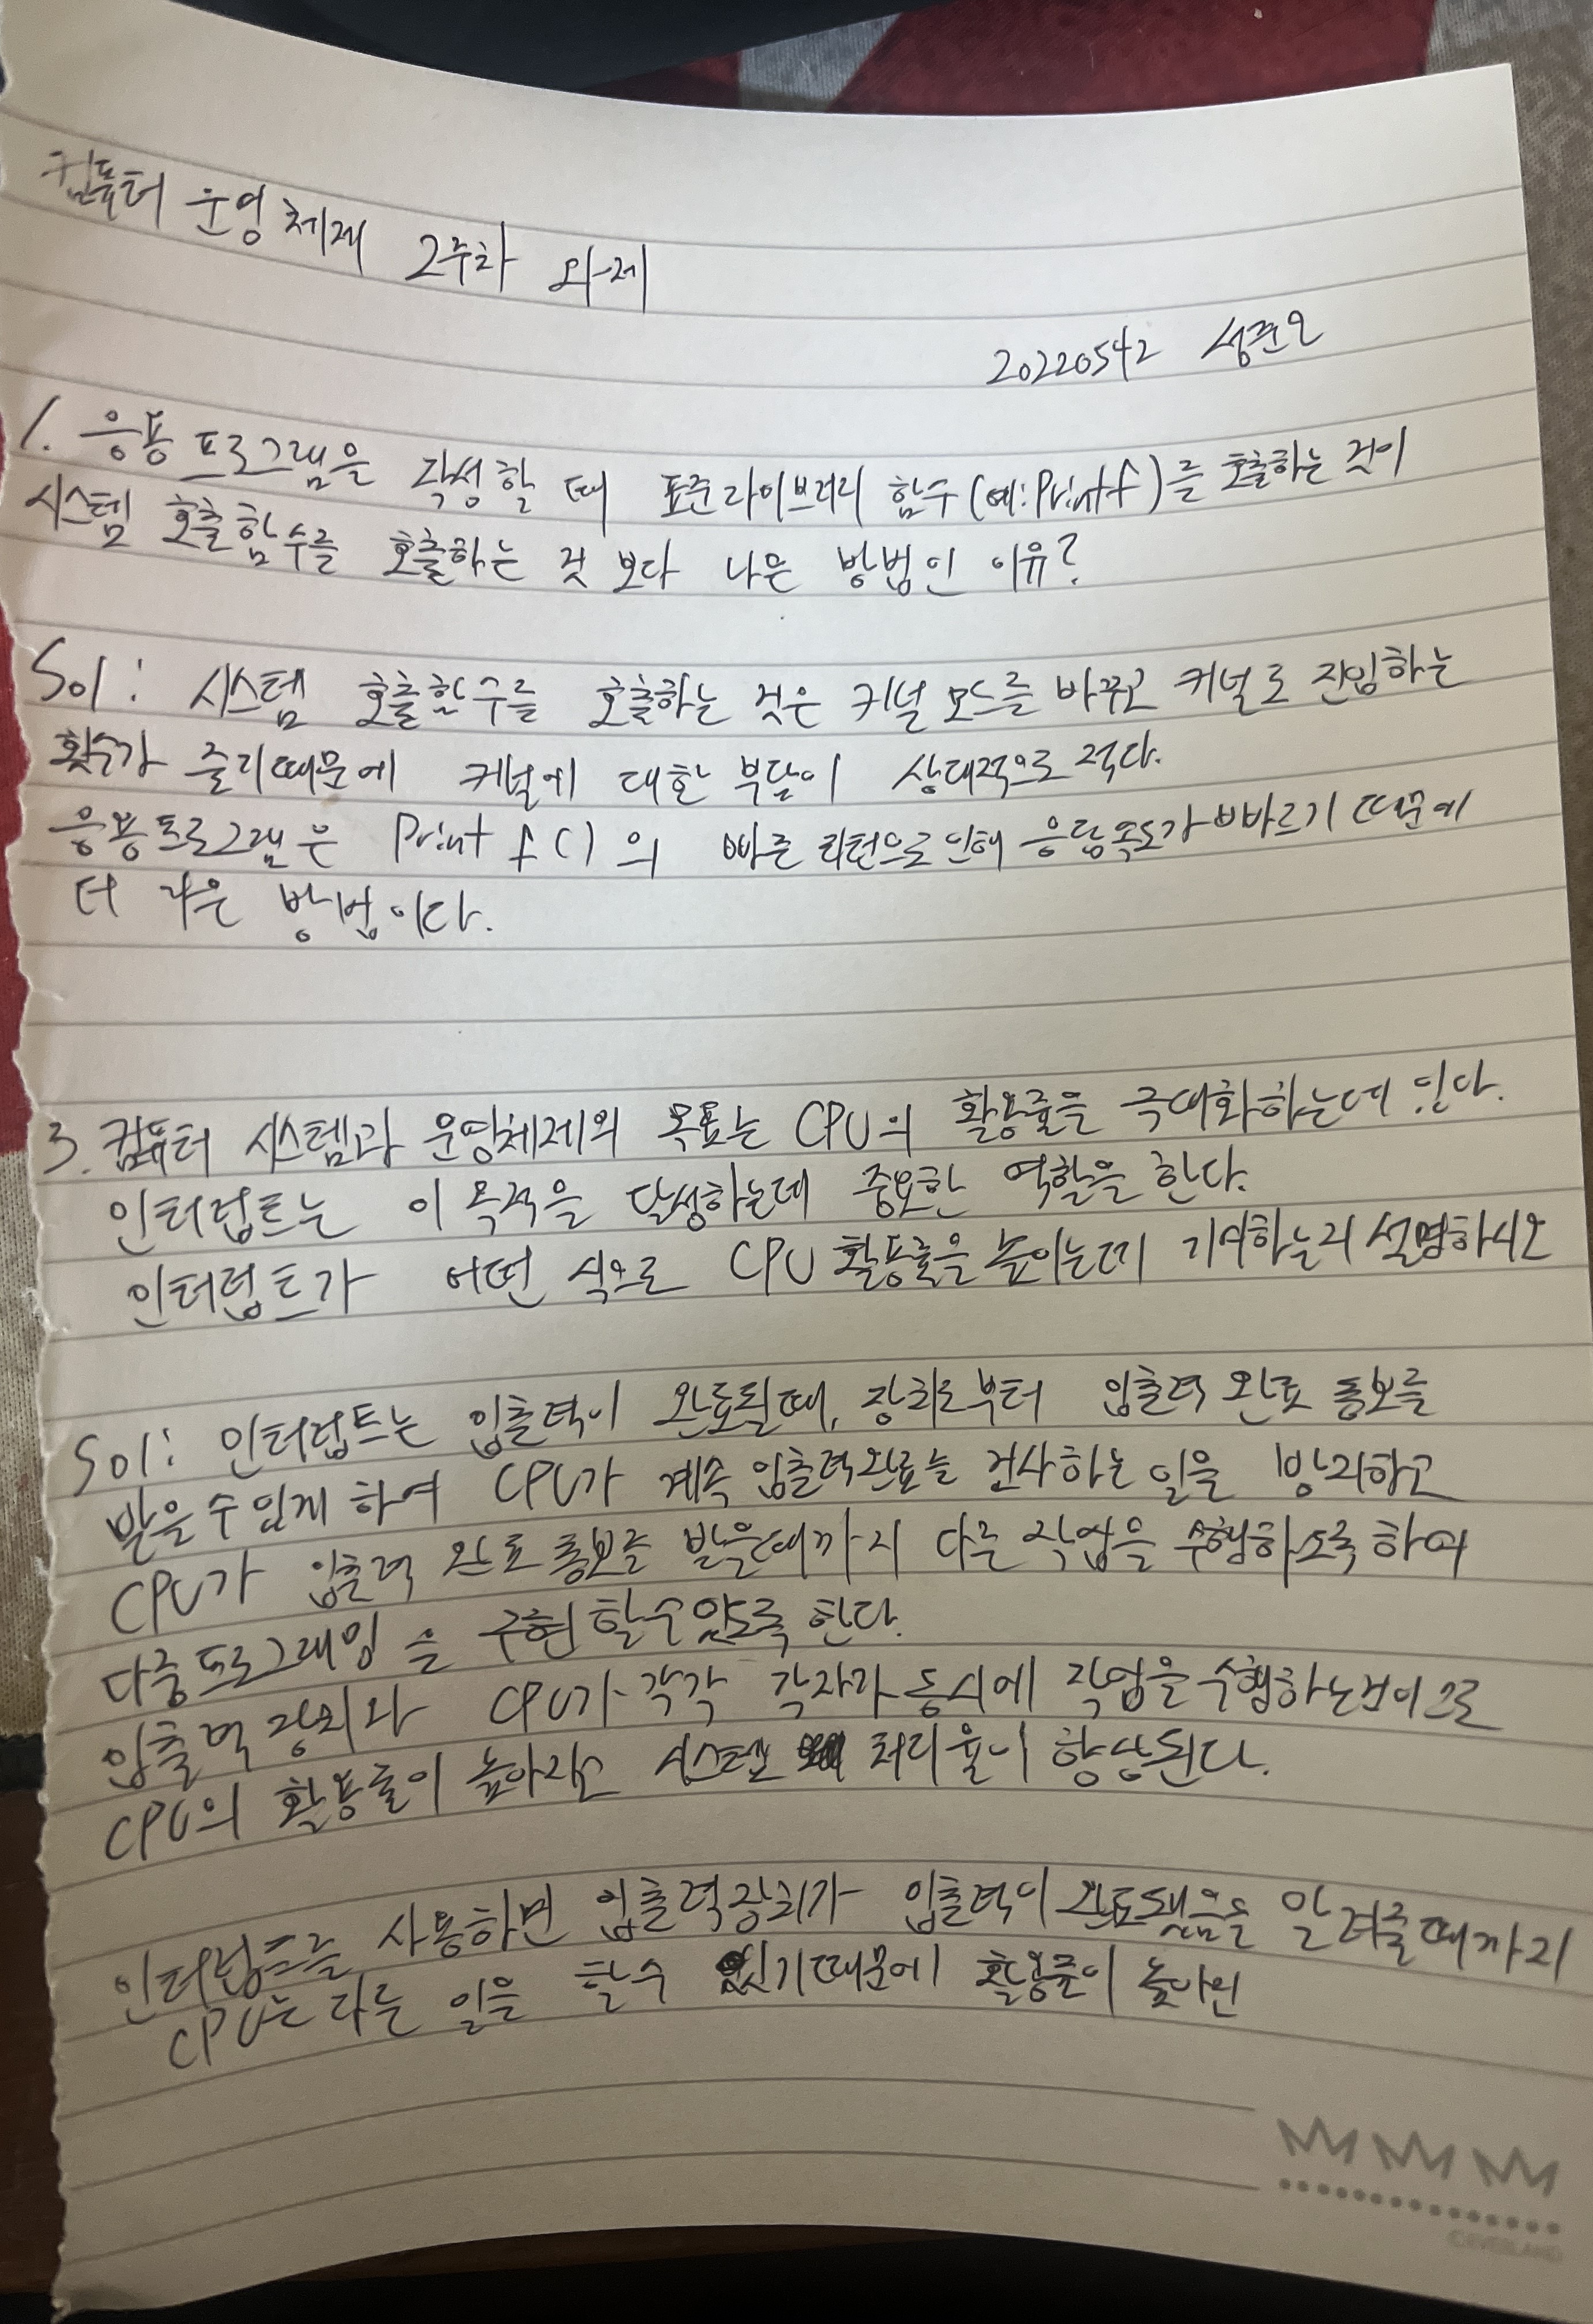 컴퓨터 운영체제 2주차 과제
20220542 성준오
1. 응용프로그램을 작성할 때 표준라이브러리 함수(예:Printf)를 호출하는 것이
시스템 호출함수를 호출하는 것 보다 나은 방법인 이유?
Sol: 시스템 호출함수를 호출하는 것은 커널 모드를 바꾸고 커널로 진입하는
횟수가 줄기때문에 커널에 대한 부담이 상대적으로 적다.
응용프로그램은 Printf()의 빠른 리턴으로 인해 응답속도가 빠르기 때문에
더 나은 방법이다.
3. 컴퓨터 시스템과 운영체제의 목표는 CPU의 활용률을 극대화하는데 있다.
인터럽트는 이 목적을 달성하는데 중요한 역할을 한다.
인터럽트가 어떤 식으로 CPU 활용률을 높이는데 기여하는지 설명하시오
Sol: 인터럽트는 입출력이 완료될때, 장치로부터 입출력 완료 통보를
받을수있게 하여 CPU가 계속 입출력완료를 검사하는 일을 방지하고
CPU가 입출력 완료 통보를 받을때까지 다른 작업을 수행하도록 하여
다중프로그래밍을 구현할수있도록 한다.
입출력 장치와 CPU가 각각 각자가 동시에 작업을 수행하는것이므로
CPU의 활용률이 높아지고 시스템 처리율이 향상된다.
인터럽트를 사용하면 입출력장치가 입출력이 완료됐음을 알려줄때까지
CPU는 다른 일을 할수 있기때문에 활용률이 높아진
CEVERLAND